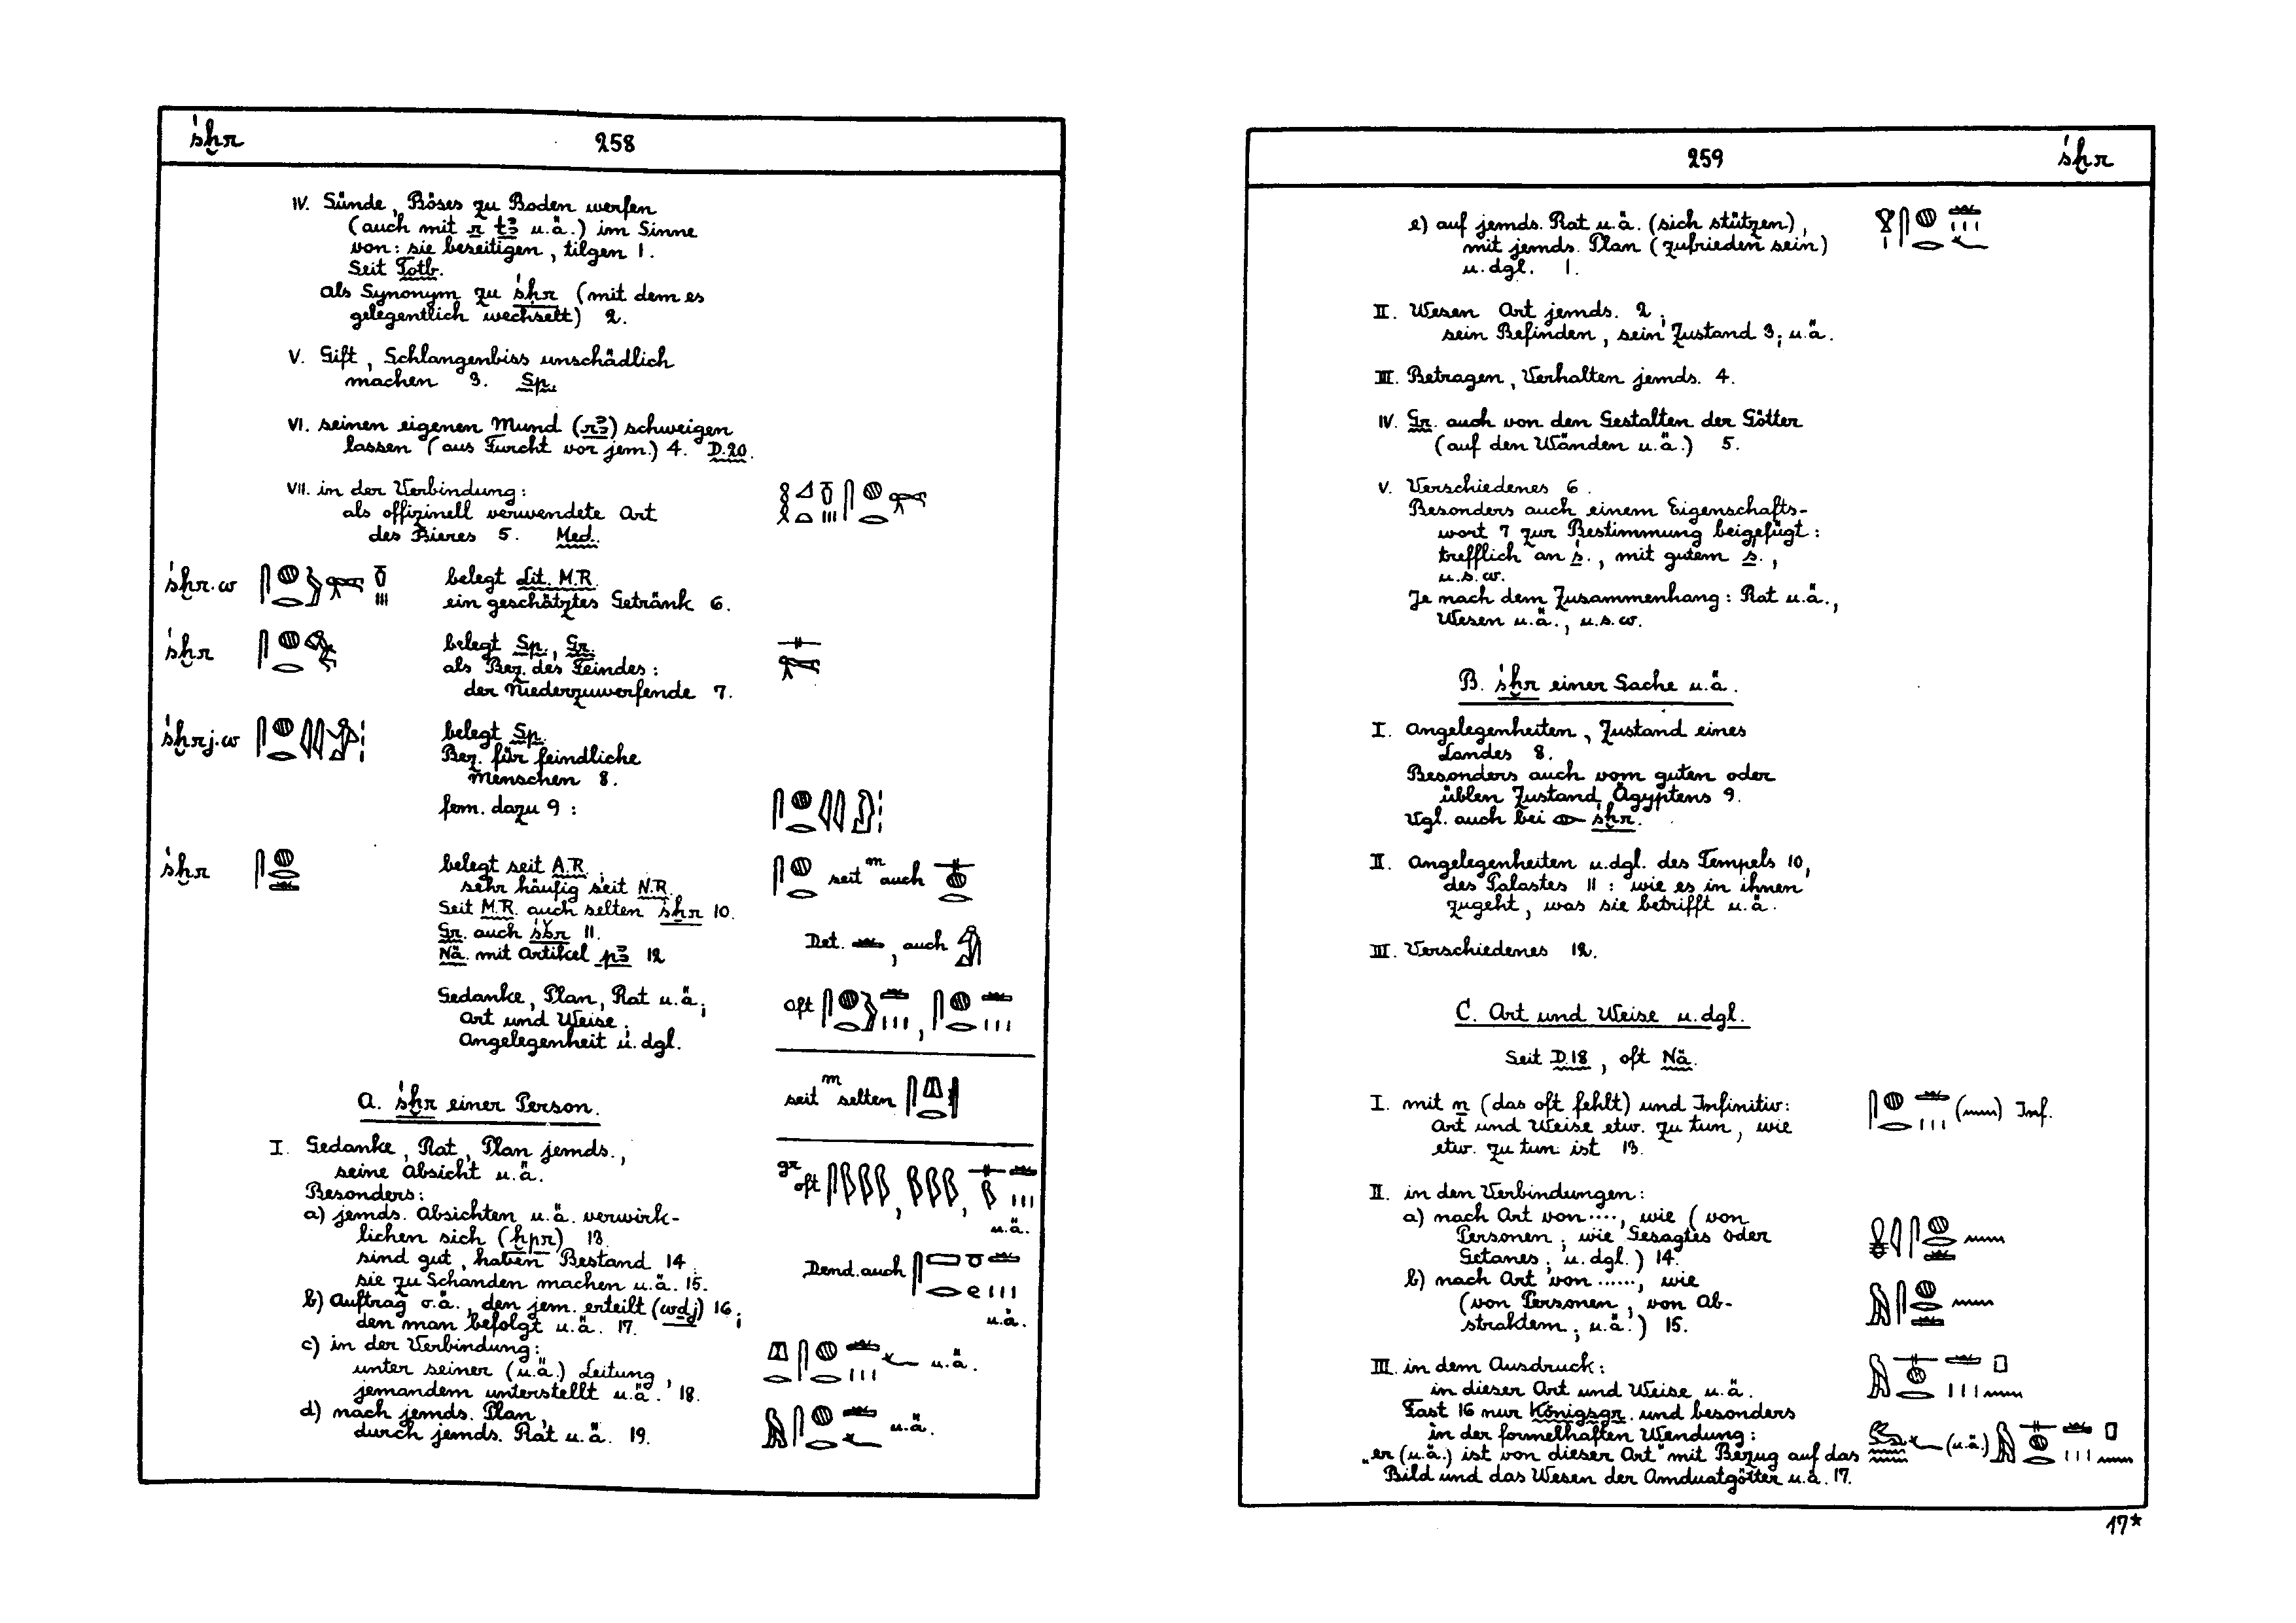 śḫr 258
IV. Sünde, Böses zu Boden werfen
(auch mit r tꜣ u.ä.) im Sinne
von: sie beseitigen, tilgen 1.
Seit Totb.
Als Synonym zu śḥr (mit dem es
gelegentlich wechselt) 2.
V. Gift, Schlangenbiss unschädlich
machen 3. Sp.
VI. seinen eigenen Mund (rꜣ) schweigen
lassen (aus Furcht vor jem.) 4. D.20.
VII. in der Verbindung:
als offizinell verwendete Art
des Bieres 5. Med.
śḫr.w belegt Lit. M.R.
ein geschätztes Getränk 6.
śḫr belegt Sp., Gr.
als Bez. des Feindes:
der Niederzuwerfende 7.
śḫrj.w belegt Sp.
Bez. für feindliche
Menschen 8.
fem. dazu 9:
śḫr belegt seit A.R. seit m auch
sehr häufig seit N.R.
Seit M.R. auch selten śẖr 10.
Gr. auch śšr 11.
Nä. mit Artikel pꜣ 12 Det. , auch
Gedanke, Plan, Rat u.ä.; oft
Art und Weise;
Angelegenheit u. dgl.
seit m selten
A. śḫr einer Person.
I. Gedanke, Rat, Plan jemds.,
seine Absicht u.ä. gr oft
Besonders:
a) jemds. Absichten u.ä. verwirk-
lichen sich (ḫpr) 13 u.ä.
sind gut, haben Bestand 14
sie zu Schanden machen u.ä. 15. Dend. auch
b) Auftrag o.ä., den jem. erteilt (wdj) 16;
den man befolgt u.ä. 17. u.ä.
c) in der Verbindung:
unter seiner (u.ä.) Leitung, u.ä.
jemandem unterstellt u.ä. 18.
d) nach jemds. Plan,
durch jemds. Rat u.ä. 19. u.ä.
259 śḫr
e) auf jemds. Rat u.ä. (sich stützen),
mit jemds. Plan (zufrieden sein)
u. dgl. 1.
II. Wesen Art jemds. 2;
sein Befinden, sein Zustand 3; u.ä.
III. Betragen, Verhalten jemds. 4.
IV. Gr. auch von den Gestalten der Götter
(auf den Wänden u.ä.) 5.
V. Verschiedenes 6.
Besonders auch einem Eigenschafts-
wort 7 zur Bestimmung beigefügt:
trefflich an ś., mit gutem ś.,
u.s.w.
Je nach dem Zusammenhang: Rat u.ä.,
Wesen u.ä., u.s.w.
B. śḫr einer Sache u.ä.
I. Angelegenheiten, Zustand eines
Landes 8.
Besonders auch vom guten oder
üblen Zustand Ägyptens 9.
Vgl. auch bei 𓁹 śḫr.
II. Angelegenheiten u.dgl. des Tempels 10,
des Palastes 11: wie es in ihnen
zugeht, was sie betrifft u.ä.
III. Verschiedenes 12.
C. Art und Weise u.dgl.
Seit D.18, oft Nä.
I. mit n (das oft fehlt) und Infinitiv: Inf.
Art und Weise etw. zu tun, wie
etw. zu tun ist 13.
II. in den Verbindungen:
a) nach Art von ...., wie (von
Personen; wie Gesagtes oder
Getanes; u. dgl.) 14.
b) nach Art von ......, wie
(von Personen, von Ab-
straktem; u.ä.) 15.
III. in dem Ausdruck:
in dieser Art und Weise u.ä.
Fast 16 nur Königsgr. und besonders
in der formelhaften Wendung: (u.ä.)
„er (u.ä.) ist von dieser Art" mit Bezug auf das
Bild und das Wesen der Amduatgötter u.ä. 17.
17*